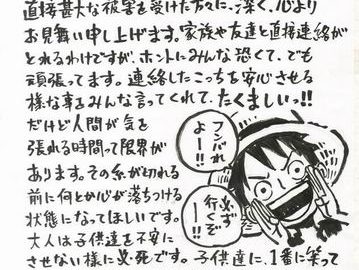 直接甚大な被害を受けた方々に、深く、心より
お見舞い申し上げます。家族や友達と直接連絡が
とれるわけですが、ホントにみんな恐くて、でも
頑張ってます。連絡したこっちを安心させる
様な事をみんな言ってくれて、たくましいっ!!
だけど人間が気を
張れる時間って限界が
あります。その糸が切れる
前に何とか心が落ちつける
状態になってほしいです。
大人は子供達を不安に
させない様に必死です。子供達に、1番に笑って
フンバれ
よー!!
必ず
行くぞ
ー!!